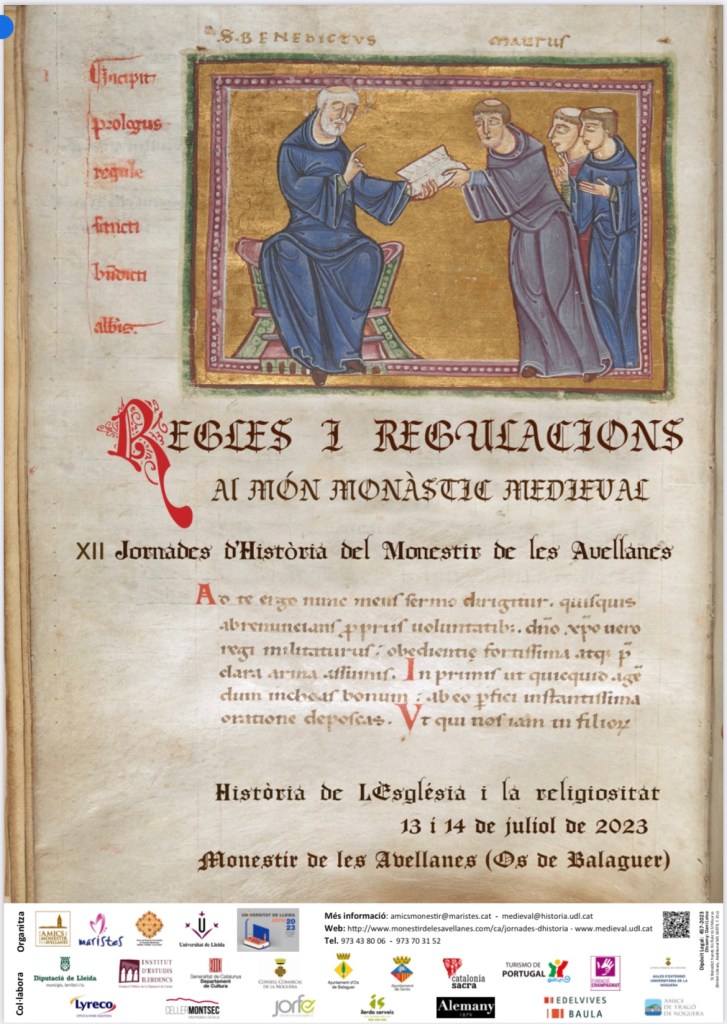 S. BENEDICTVS
MAURUS
Incipit
prologus
regule
sancti
albis.
REGLES I REGULACIONS
Al MÓN MONÀSTIC MEDIEVAL
XII Jornades d'Història del Monestir de les Avellanes
Ad te ergo nunc meus sermo dirigitur. quisquis
abrenuncians
regi militaturus; obedientię fortissima atq;
clara arma assumis. In primis ut quicquid agen
dum inchoas bonum; ab eo instantissima
oratione deposcas. Vt qui nos iam in
Història de L'Església i la religiositat
13 i 14 de juliol de 2023
Monestir de les Avellanes (Os de Balaguer)
Organitza
AMICS
MONESTIR
maristes
Universitat de Lleida
UNIVERSITAT DE LLEIDA
2023
Més informació: amicsmonestir@maristes.cat - medieval@historia.udl.cat
Web: http://www.monestirdelesavellanes.com/ca/jornades-dhistoria - www.medieval.udl.cat
Tel. 973 43 80 06 - 973 70 31 52
Col·labora
Diputació de Lleida
INSTITUT
D'ESTUDIS
ILERDENCS
Generalitat de Catalunya
Departament
de Cultura
CONSELL COMARCAL
DE LA NOGUERA
Ajuntament d'Os
de Balaguer
Ajuntament
catalonia
sacra
TURISMO DE
PORTUGAL
AULES D'EXTENSIÓ
UNIVERSITÀRIA DE LA
NOGUERA
Lyreco
CELLER MONTSEC
jorfe
ilerda serveis
Alemany
1879
EDELVIVES
BAULA
AMICS
DE ARAGÓ
DE NOGUERA